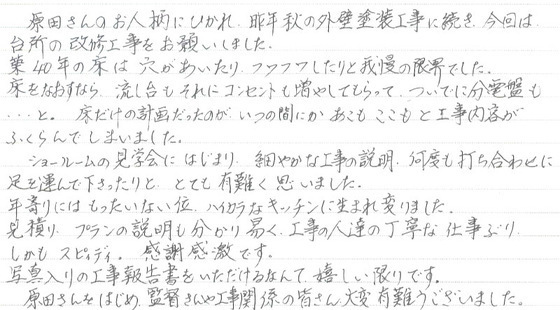 原田さんのお人柄にひかれ、昨年秋の外壁塗装工事に続き、今回は、
台所の改修工事をお願いしました。
築40年の床は穴があいたり、フワフワしたりと我慢の限界でした。
床をなおすなら、流し台もそれにコンセントも増やしてもらって、ついでに分電盤も
…と。 床だけの計画だったのが、いつの間にかあこもここもと工事内容が
ふくらんでしまいました。
ショールームの見学会にはじまり、細やかな工事の説明、何度も打ち合わせに
足を運んで下さったりと、とても有難く思いました。
年寄りにはもったいない位、ハイカラなキッチンに生まれ変りました。
見積り、プランの説明も分かり易く、工事の人達の丁寧な仕事ぶり、
しかもスピィディ。 感謝感激です。
写真入りの工事報告書をいただけるなんて、嬉しい限りです。
原田さんをはじめ、監督さんや工事関係の皆さん、大変有難うございました。